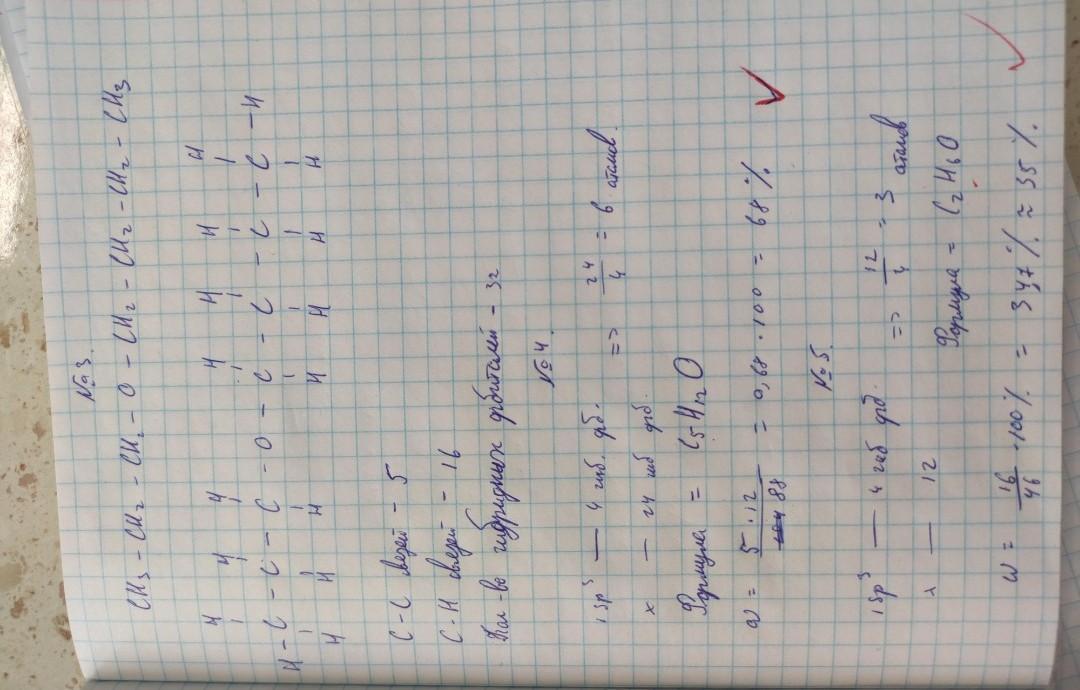 №3.
CH3 - CH2 - CH2 - O - CH2 - CH2 - CH2 - CH3
H H H H H H H
H - C - C - C - O - C - C - C - C - H
H H H H H H H
C-C связей - 5
C-H связей - 16
Кол-во гибридных орбиталей - 32
№4.
1sp³ — 4 гиб. орб.
x — 24 гиб орб. => 24/4 = 6 атомов.
Формула = C5H12O
ω = 5·12/88 = 0,68 · 100 = 68 %
№5.
1sp³ — 4 гиб орб.
x — 12 => 12/4 = 3 атомов
Формула = C2H6O
W = 16/46 · 100% = 34,7 % ≈ 35 %.